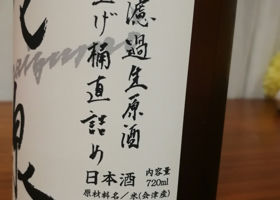 泉
濾過生原酒
上げ桶直詰め
日本酒
内容量
720ml
原材料名/米(会津産)